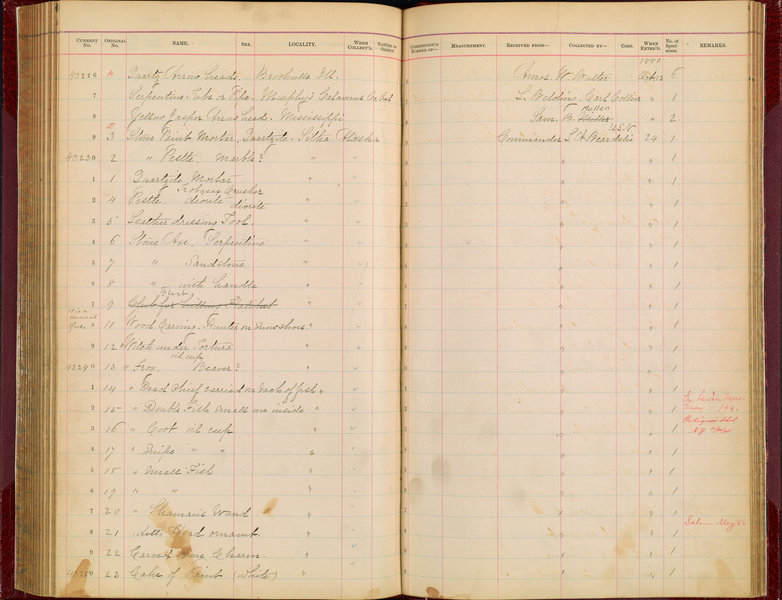 CURRENT No. ORIGINAL No. NAME. SEX. LOCALITY. WHEN COLLECT'D. NATURE OF OBJECT. CORRESPOND'G NUMBER OF— MEASUREMENT. RECEIVED FROM— COLLECTED BY— COST. WHEN ENTER'D. No. of Speci-mens. REMARKS.
Quartz Arrow heads. Brookville Ill. Amos. W. Butler Oct. 12 6
7 Serpentine Tube or Pipe. Murphy's Calaveras Co. Cal L. Belding. " 1
8 Yellow Jasper Arrow head. Mississippi Sam. B. " 2
9 3 Stone Paint Mortar, Quartzite. Sitka Alaska Commander L A Beardslee U.S.N. 24 1
40230 2 " Pestle. marble? " " " 1
1 1 Quartzite Mortar " " " 1
2 4 Pestle diorite Tobacco Crusher diorite " " " 1
3 5 Leather dressing Tool. " " " 1
4 6 Stone Axe. Serpentine " " " 1
5 7 " Sandstone " " " 1
6 8 " with handle " " " 1
7 9 Club for killing Halibut " " " 1
11 Wood Carving. Hunter on snow shoes " " " 1
9 12 " Witch under Torture " " " 1
40240 13 " Frog oil cup Beaver? " " " 1
1 14 " Dead Chief carried on back of " " " 1
2 15 " Double Fish small one inside " " " 1
3 16 " Coot oil cup " " " 1
4 17 " Snipe " " " " " 1
5 18 " Small Fish " " " 1
6 19 " " " " " 1
7 20 " Shaman's Wand " " " 1
8 21 " Head ornamt " " " 1
9 22 Carved bone Charm. " " " 1
40250 23 Cake of Paint (white) " " " 1